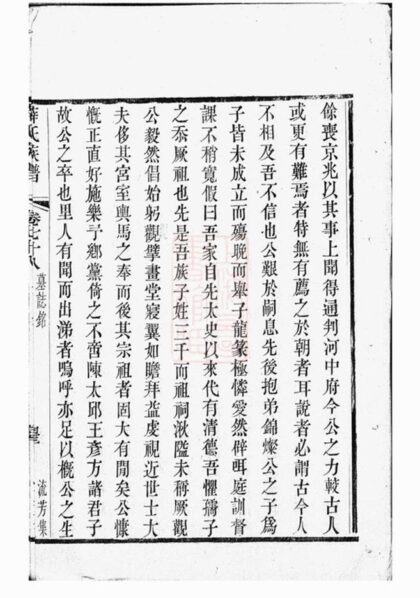 餘喪京兆以其事上聞得通判河中府今公之力較古人
或更有難焉者特無有薦之於朝者耳說者必謂古今人
不相及吾不信也公艱於嗣息先後抱弟錦燦公之子爲
子皆未成立而殤晚而舉子龍篆極憐愛然辟咡庭訓督
課不稍寬假曰吾家自先太史以來代有清德吾懼孺子
之忝厥祖也先是吾族子姓三千而祖祠湫隘未稱厥觀
公毅然倡始躬觀擘畫堂寢翼如瞻拜益虔視近世士大
夫侈其宮室輿馬之奉而後其宗祖者固大有閒矣公慷
慨正直好施樂予鄉黨倚之不啻陳太邱王彥方諸君子
故公之卒也里人有聞而出涕者嗚呼亦足以概公之生
薛氏族譜
卷七十八
墓誌銘
流芳集